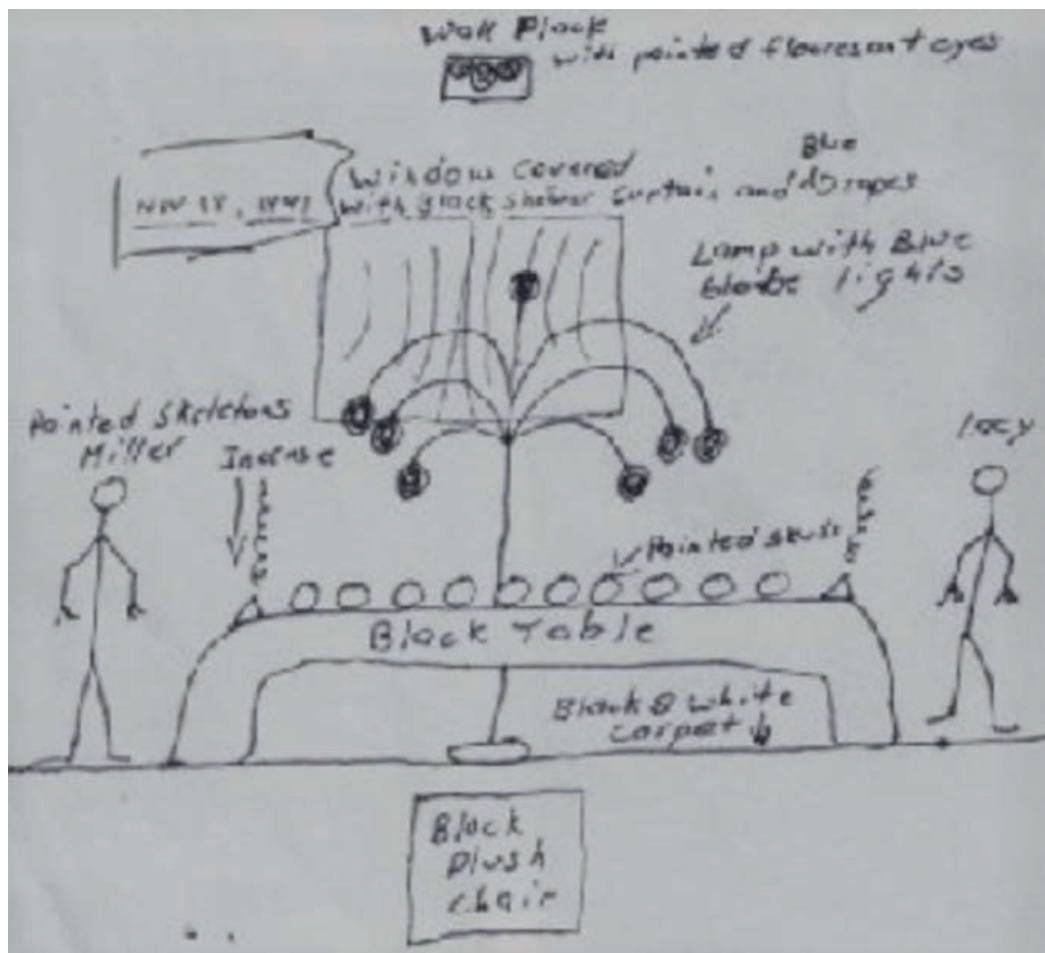 Wall Plack
with painted fluoresant eyes
Blue
Window Covered
with Black shower curtain and Drapes
NOV
Lamp with Blue
Globe lights
Painted Skeletons
Miller
Insense
Lacy
Painted skulls
Black Table
Black & white
carpet
Black
plush
chair